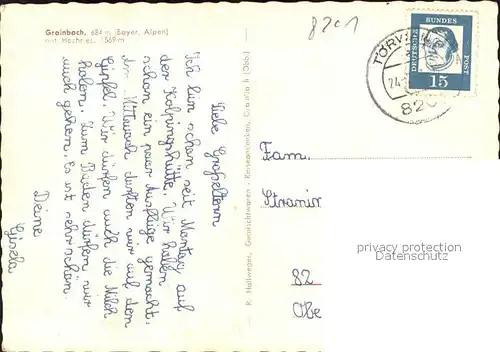 Grainbach, 684 m (Bayer. Alpen)
mit Hochries, 1569 m
8201
DEUTSCHE BUNDES POST
15
24.
820
Liebe Großeltern
Ich bin schon seit Montag auf
der Kolpingshütte. Wir haben
schon ein paar Ausflüge gemacht.
Am Mittwoch durften wir auf den
Gipfel. Wir dürfen auch die Milch
holen. Zum Baden dürfen wir
auch gehen. Es ist sehr schön.
Deine
Gisela
R. Hallweger, Gemischtwaren - Reiseandenken, Grainbach (Obb.)
Fam.
Stranir
82
Obe
privacy protection
Datenschutz